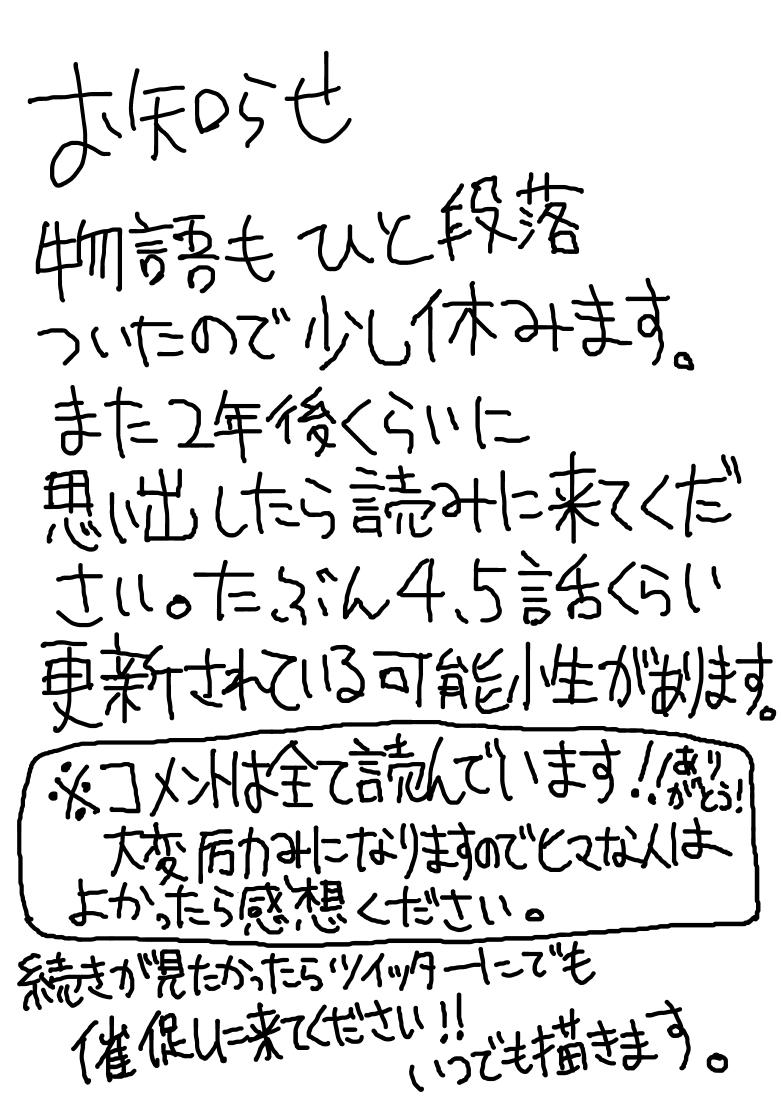 お知らせ
物語もひと段落
ついたので少し休みます。
また2年後くらいに
思い出したら読みに来てくだ
さい。たぶん4、5話くらい
更新されている可能性があります。
※コメントは全て読んでいます!!ありがとう!
大変励みになりますのでヒマな人は
よかったら感想ください。
続きが見たかったらツイッターにでも
催促しに来てください!!
いつでも描きます。